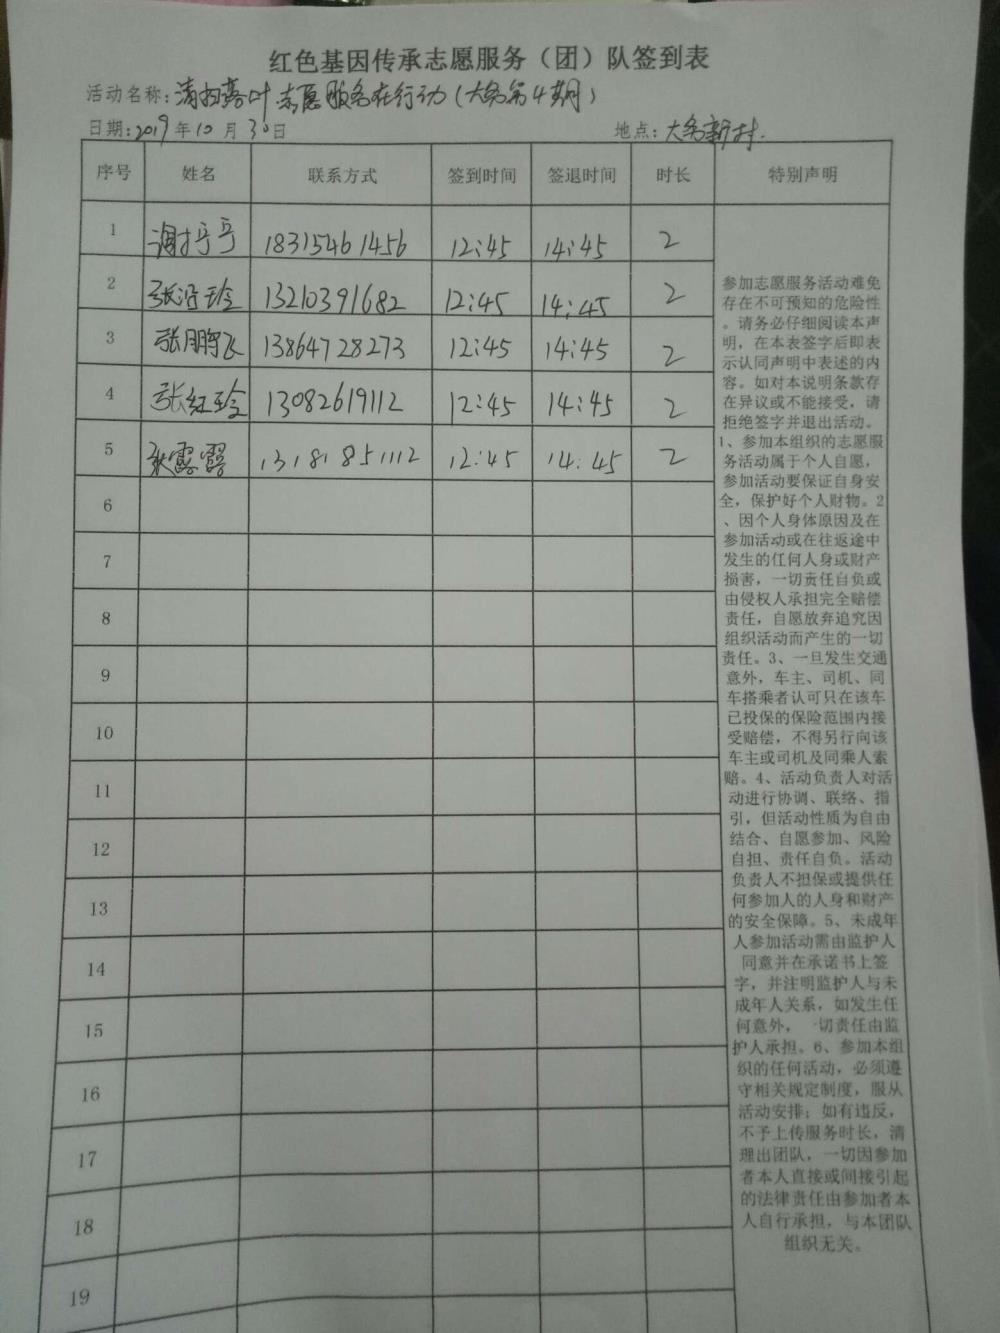 红色基因传承志愿服务（团）队签到表
活动名称：清扫落叶 志愿服务在行动（大务第4期）
日期：2019年10月30日 地点：大务新村.
序号 姓名 联系方式 签到时间 签退时间 时长 特别声明
1 18315461456 12:45 14:45 2
2 13210391682 12:45 14:45 2
3 张鹏飞 13864728273 12:45 14:45 2
4 张红玲 13082619112 12:45 14:45 2
5 露露 13181851112 12:45 14:45 2
6
7
8
9
10
11
12
13
14
15
16
17
18
19
参加志愿服务活动难免
存在不可预知的危险性
。请务必仔细阅读本声
明，在本表签字后即表
示认同声明中表述的内
容。如对本说明条款存
在异议或不能接受，请
拒绝签字并退出活动。
1、参加本组织的志愿服
务活动属于个人自愿，
参加活动要保证自身安
全，保护好个人财物。2
、因个人身体原因及在
参加活动或在往返途中
发生的任何人身或财产
损害，一切责任自负或
由侵权人承担完全赔偿
责任，自愿放弃追究因
组织活动而产生的一切
责任。3、一旦发生交通
意外，车主、司机、同
车搭乘者认可只在该车
已投保的保险范围内接
受赔偿，不得另行向该
车主或司机及同乘人索
赔。4、活动负责人对活
动进行协调、联络、指
引，但活动性质为自由
结合、自愿参加、风险
自担、责任自负。活动
负责人不担保或提供任
何参加人的人身和财产
的安全保障。5、未成年
人参加活动需由监护人
同意并在承诺书上签
字，并注明监护人与未
成年人关系，如发生任
何意外，一切责任由监
护人承担。6、参加本组
织的任何活动，必须遵
守相关规定制度，服从
活动安排；如有违反，
不予上传服务时长，清
理出团队，一切因参加
者本人直接或间接引起
的法律责任由参加者本
人自行承担，与本团队
组织无关。